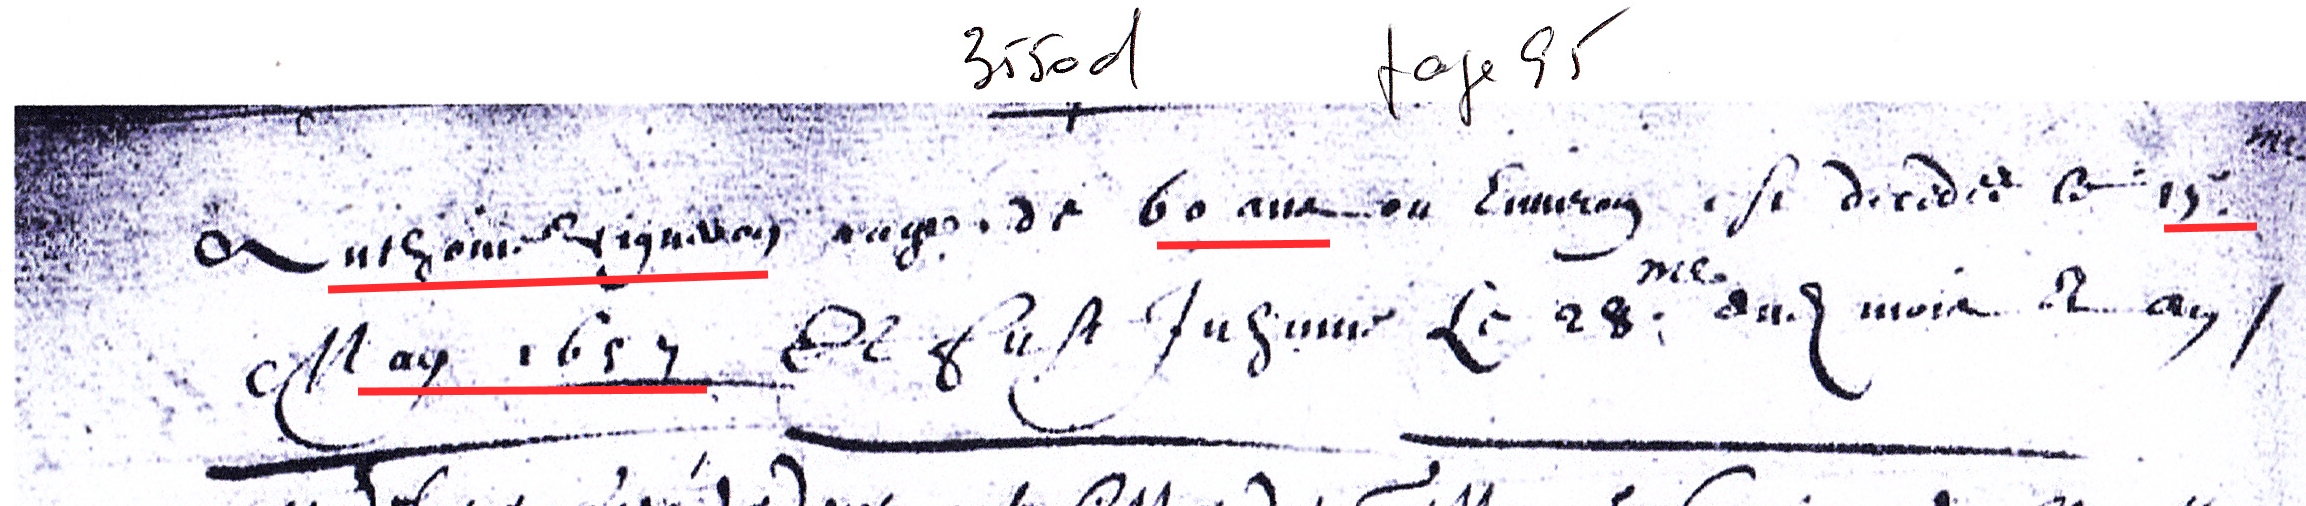 3550d page 95
Anthoine pigneron aagé de 60 ans ou Enuiron est decedé le 15 me
May 1657 Et fust Inhumé Le 28 me dud mois & an /